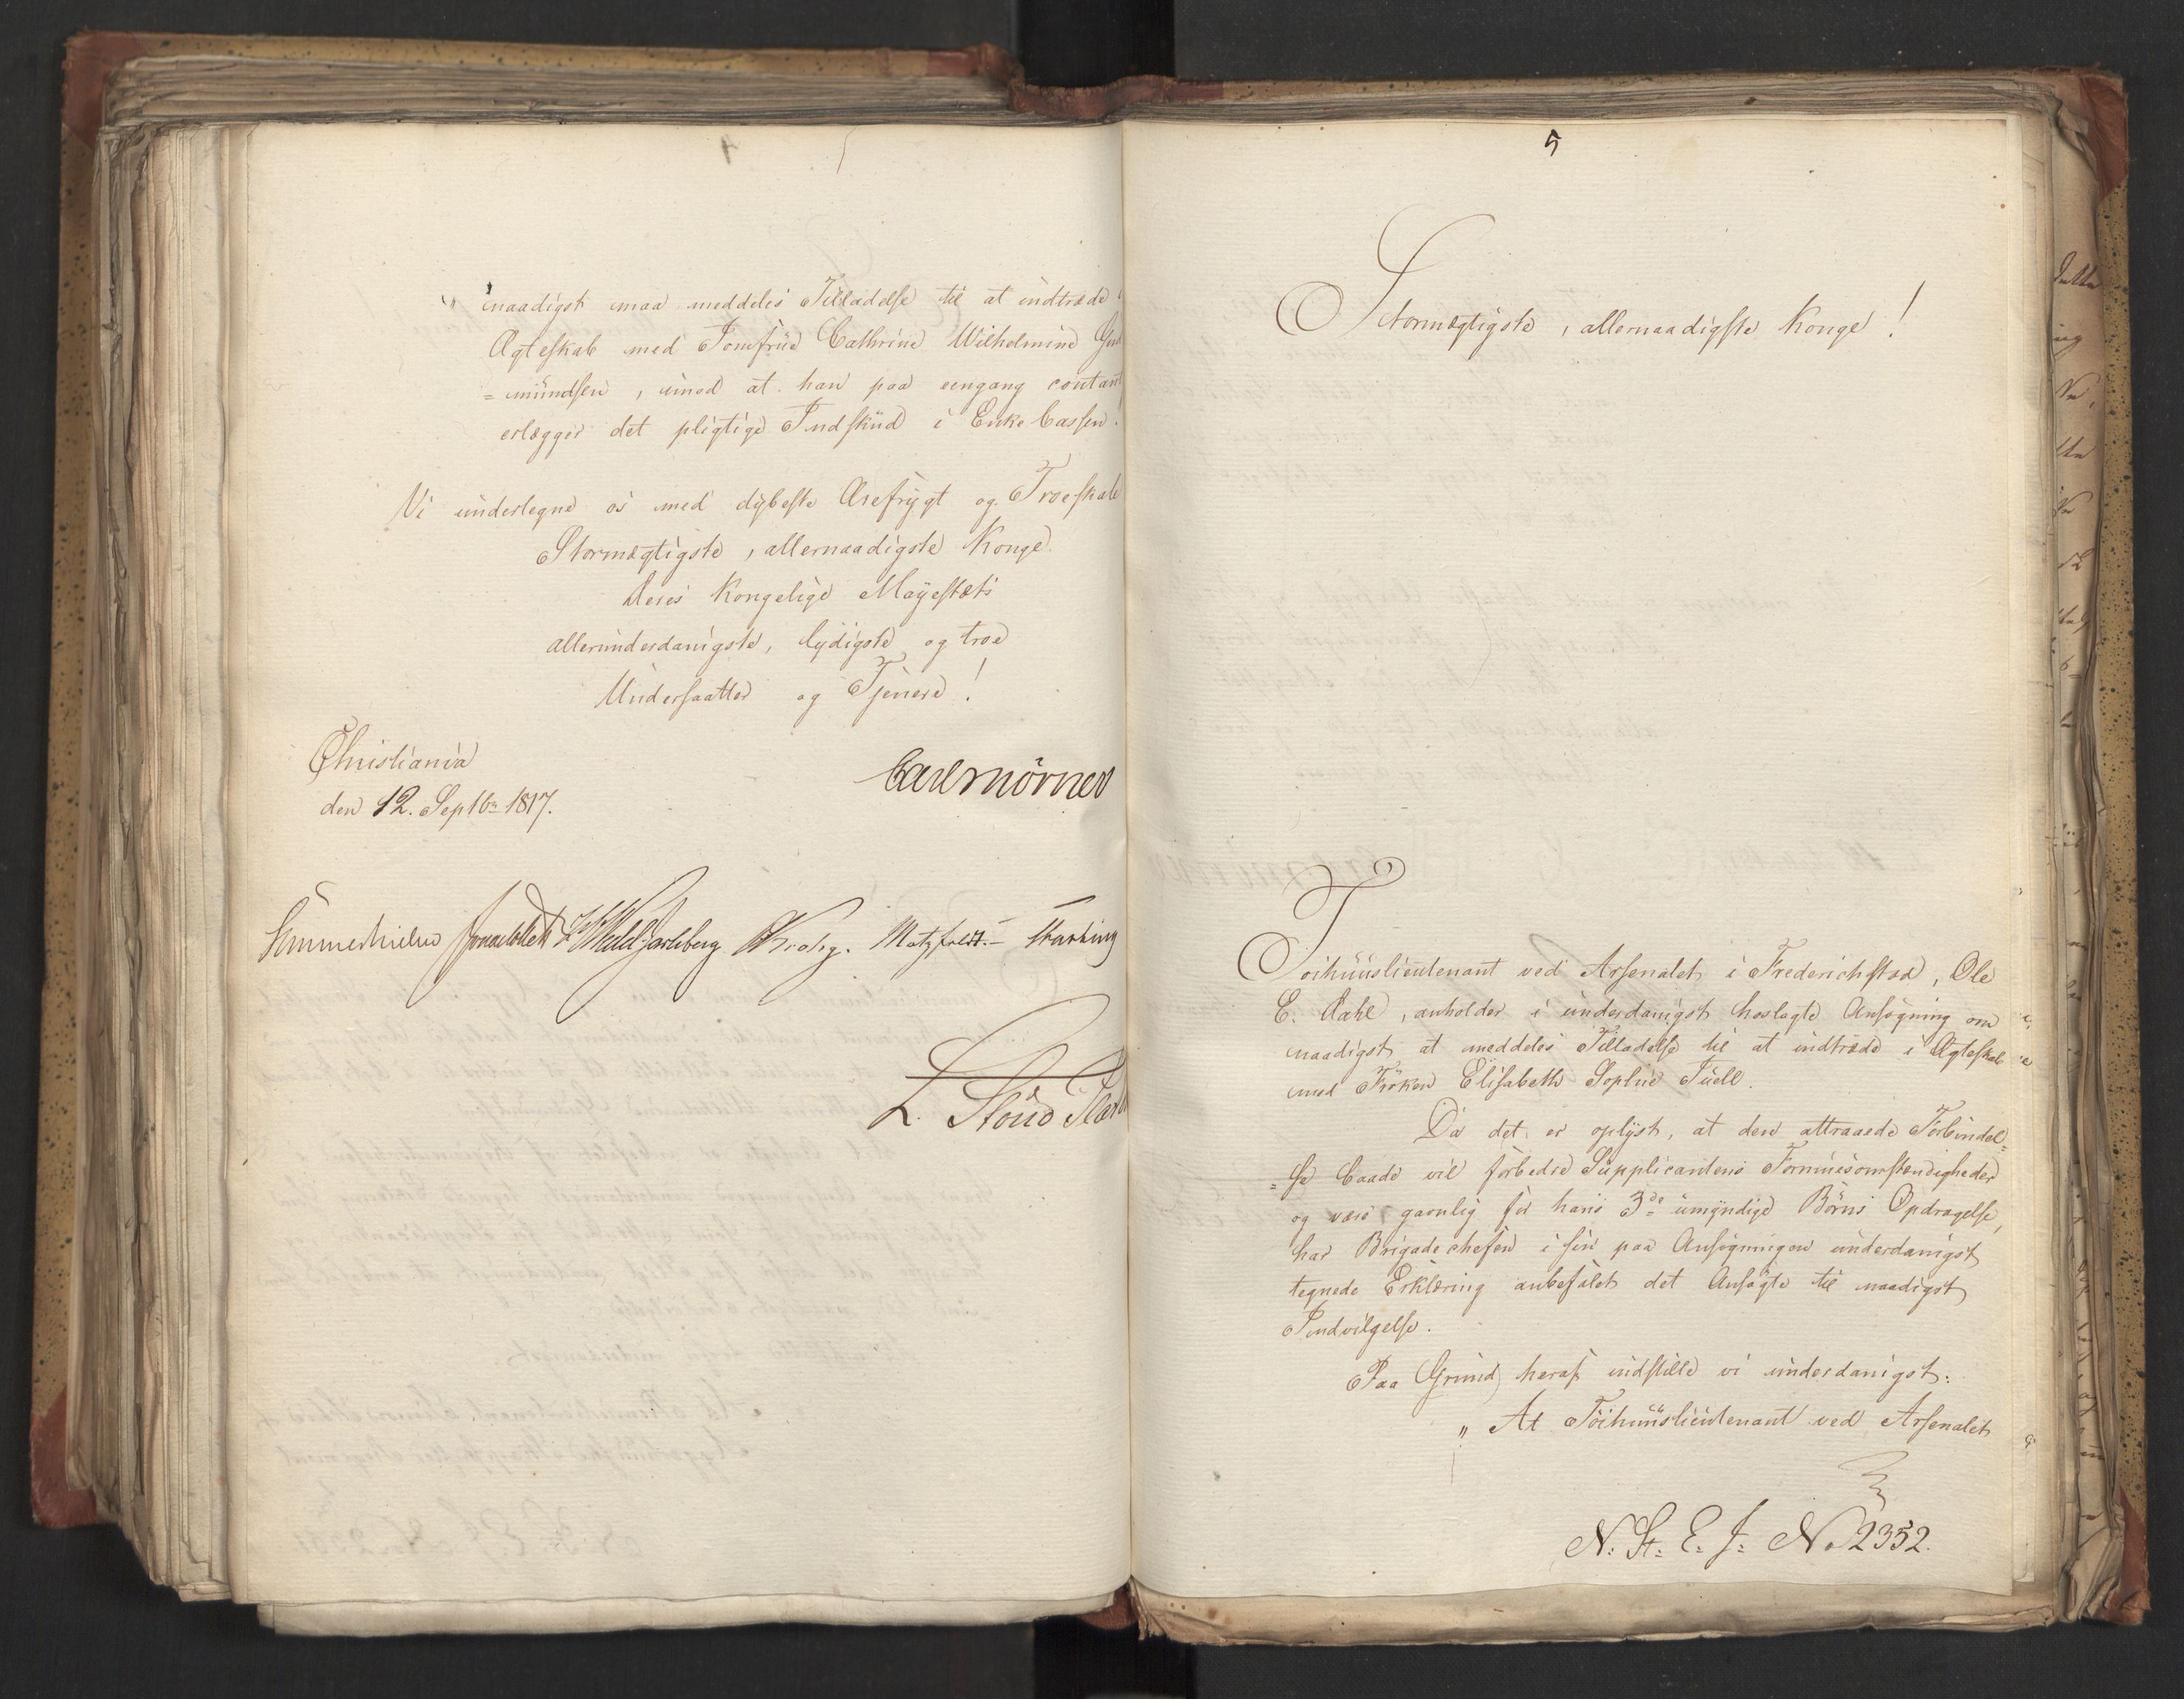 „ naadigst maa meddeles Tilladelse til at indtræde i
Ægteskab med Jomfrue Cathrine Wilhelmine Gud
=mundsen, imod at han paa eengang contant
erlægger det pligtige Indskud i Enke Cassen.
Vi undertegne os med dybeste Ærefrygt og Troeskab
Stormægtigste, allernaadigste Konge
Deres Kongelige Mayestæts
allerunderdanigste, lydigste og troe
Undersaatter og Tjenere!
Christiania
den 12. Septbr 1817.
Carl Mörner
Sommerhielm Jonas Collett FWedel Jarlsberg Krohg. Motzfeldt.- Fasting
L. Stoud Platou
5
Stormægtigste, allernaadigste Konge!
Toihuuslieutenant ved Arsenalet i Frederichstad, Ole
E. Dahl, anholder i underdanigst hoslagte Ansøgning om
naadigst at meddeles Tilladelse til at indtræde i Ægteskab
med Frøken Elisabeth Sophie Juell.
Da det er oplyst, at den attraaede Forbindel=
=se baade vil forbedre Supplicantens Formuesomstændigheder
og være gavnlig for hans 3de umyndige Børns Opdragelse,
har Brigadechefen i sin paa Ansøgningen underdanigst
tegnede Erklæring anbefalet det Ansøgte til naadigst
Indvilgelse.
Paa Grund heraf indstille vi underdanigst:
„ At Töihuuslieutenant ved Arsenalet
N. St. E. J. No 2352.